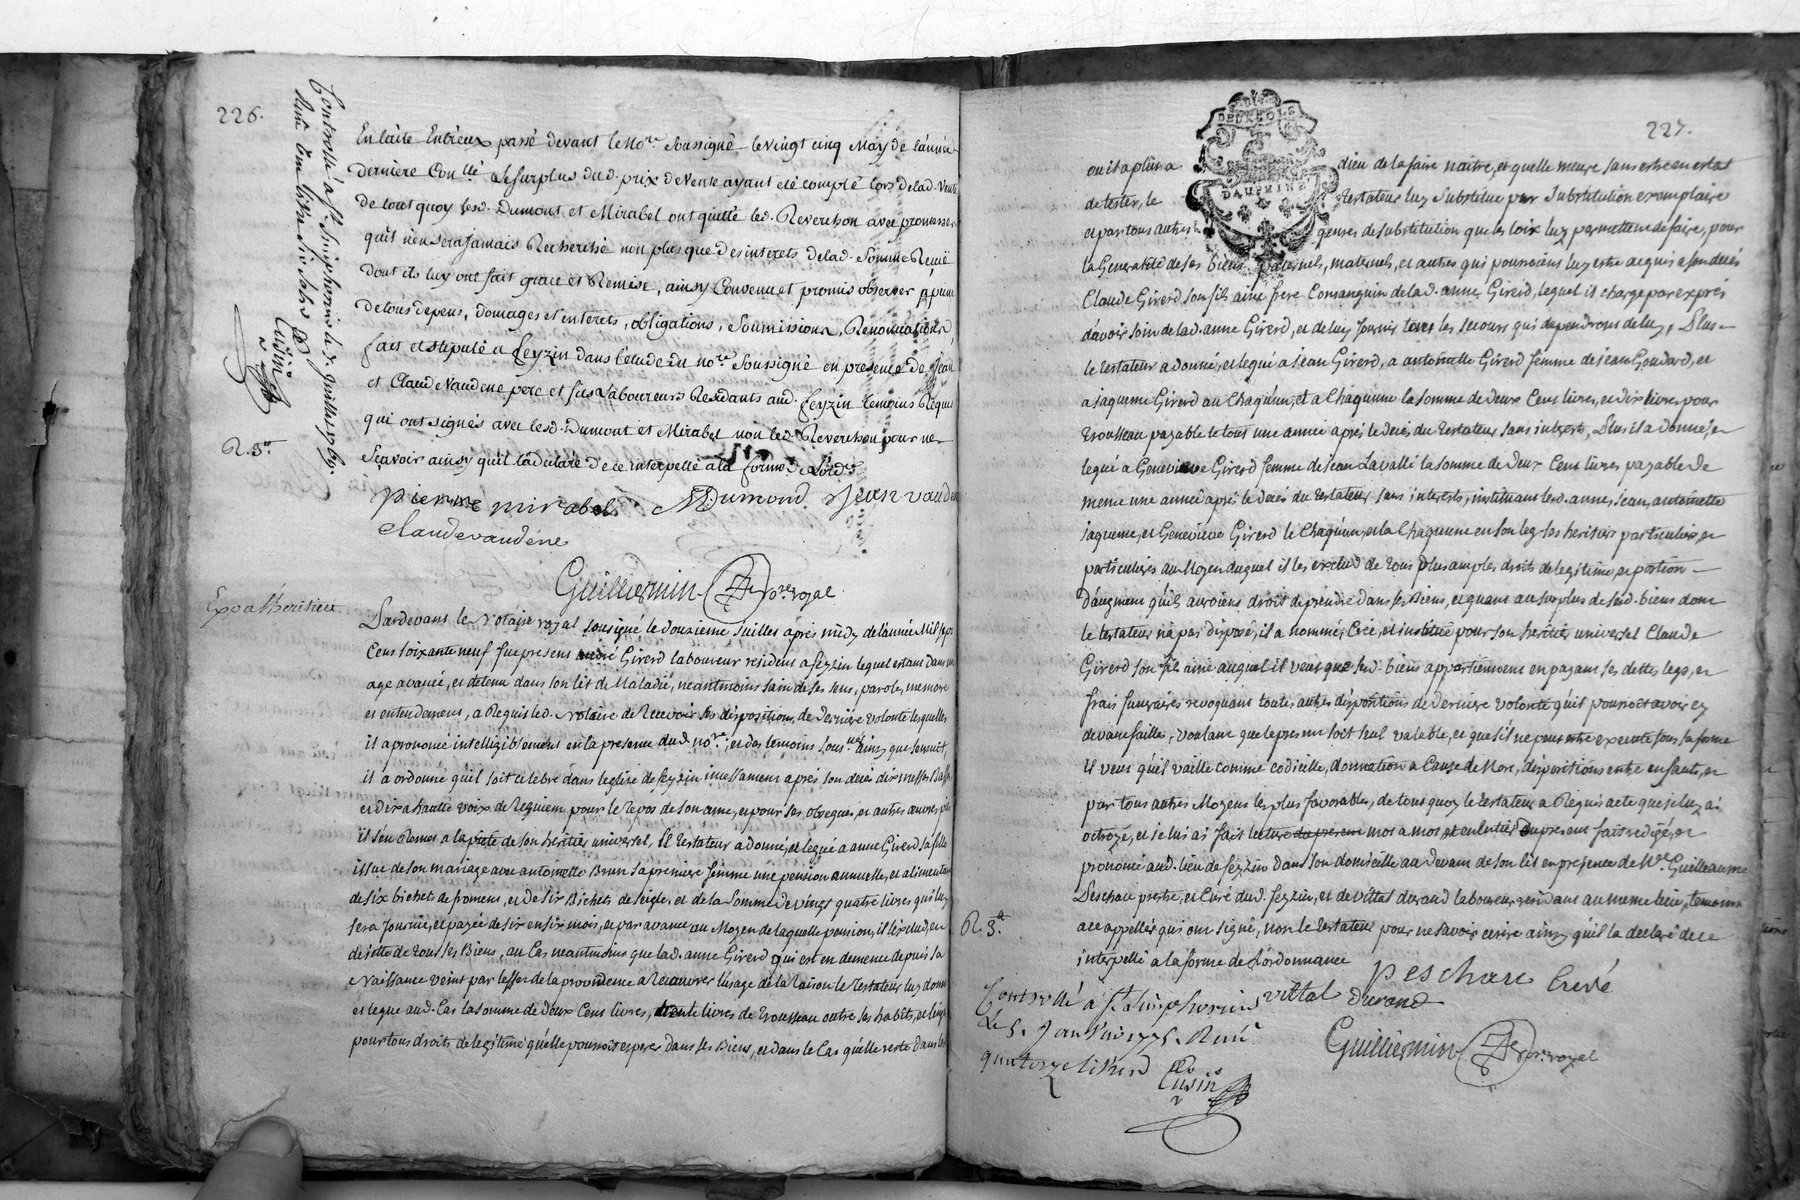 226.
Controllé a St. Simphorien le d. juillet 1769.
Cusin
En laite Entreux passé devant le No.re Soussigné le vingt cinq May de l'année
derniere Con.llé le surplus dud. prix de Vente ayant eté compté lors delad. Vente
de tout quoy lesd. Dumont et Mirabel ont quitté led. Reverchon avec promesse
quil n'en sera jamais Recherché non plus que des interets delad. Somme Reçuë
dont ils luy ont fait grace et Remise, ainsy Convenu et promis observer a peine
de tous depens, domages et interets, obligations, Soumissions, Renonciations
fait et stipulé a feyzin dans l'etude du no.re Soussigné en presence de Jean
et Claude Vaudene pere et fils Laboureurs Residants aud. feyzin temoins Requis
qui ont signés avec lesd. Dumont et Mirabel non led. Reverchon pour ne
Sçavoir ainsy quil la declaré de ce interpellé a la forme de l'ord.ce
R. 3.#
pierre mirabel MDumond Jean vauden
claude vaudéne
Guilliermin No.re royal
Exp a l'heritieu
Pardevant le Notaire royal sousigné le douzieme Juillet après midy de l'année Mil sept
Cens soixante neuf fut present andré Girerd laboureur resident a feyzin lequel estant dans un
age avancé, et detenu dans son lit de Maladie, neantmoins sain de ses sens, parole, memoire
et entendement, a Requis led. Notaire de Recevoir ses dispositions de derniere volonté lesquelles
il a prononcé intelligiblement en la presence dud. no.re, et des temoins sous.nés ainsy que sensuit,
il a ordonné qu'il soit celebré dans leglise de feyzin incessament après son decès dix messes Basse
et dix a hautte voix de Requiem pour le Repos de son ame, et pour ses obseques, et autres œuvres pies
il s'en Remet a la pieté de son heritier universel, Le testateur a donné, et legué a anne Girerd sa fille
issue de son mariage avec antoinette Brun sa premiere femme une pension annuelle, et alimentaire
de six bichets de froment, et de six Bichets de seigle, et de la Somme de vingt quatre livres qui luy
sera fournie, et payée de six en six mois, et par avance au Moyen de laquelle pension, il l'exclud, en
dejette de tous ses Biens, au Cas neantmoins que lad. anne Girerd qui est en demence depuis sa
Naissance veint par l'effet de la providence a Recouvrer l'usage de la Raison le Testateur luy donne
et legue aud. Cas la somme de deux Cens livres, trente livres de trousseau outre ses habits, et linge
pour tous droits de legitime qu'elle pourroit esperer dans ses Biens, et dans le Cas qu'elle reste dans l'etat
227.
DEUX SOLS
DAUPHINE
ou il a plû a dieu de la faire naitre, et quelle meure sans estre en estat
de tester, le testateur luy substitue par Substitution exemplaire
et par tous autres genres de substitution que les loix luy permettent de faire, pour
la Generalité de ses biens paternels, maternels, et autres qui pourroient luy estre acquis a son decès
Claude Girerd son fils ainé frere Consanguin delad. anne Girerd, lequel il charge par exprès
d'avoir soin de lad. anne Girerd, et de luy fournir tous les secours qui dependront de luy, Plus
le testateur a donné, et legué a jean Girerd, a antoinette Girerd femme de jean Goudard, et
a jaqueme Girerd au Chaqu'un, et a Chaqu'une la somme de deux Cens livres, et dix livres pour
trousseau payable le tout une année après le decès du testateur sans interests, Plus il a donné, et
legué a Genevieve Girerd femme de jean Lavallé la somme de deux Cens livres payable de
meme une année après le decès du testateur sans interests, instituant lesd. anne, jean, antoinette
jaqueme, et Genevieve Girerd le Chaqu'un, et la Chaqu'une en son leg ses heritiers particuliers, et
particulieres au Moyen duquel il les exclud de tous plus amples droits de legitime et portion
d'augment qu'ils auroient droit de prendre dans ses Biens, et quant au surplus de sesd. biens dont
le testateur n'a pas disposé, il a nommé, Créé, et institué pour son heritier universel Claude
Girerd son fils ainé auquel il veut que sesd. biens appartiennent en payant ses dettes legs, et
frais funeraires revoquant toutes autres dispositions de derniere volonté qu'il pourroit avoir cy
devant faittes, voulant que le present soit seul valable, et que s'il ne peut etre executé sous sa forme
il veut qu'il vaille comme codicille, donnation a Cause de Mort, dispositions entre enfants, et
par tous autres Moyens les plus favorables, de tous quoy le testateur a Requis acte que je luy ai
octroyé, et je lui ai fait lecture du present mot a mot et en entier Du present fait redigé, et
prononcé aud. lieu de feyzin dans son domicille au devant de son lit en presence de M.re Guilleaume
Peschare prestre, et Curé dud. feyzin, et de vittal durand laboureur residant au meme lieu, temoins
a ce appellés qui ont signé, non le testateur pour ne savoir ecrire ainsy qu'il la declaré de ce
interpellé a la forme de l'ordonnance
R. 3.#
peschare Curé
vittal durand
Controllé a St. Simphorien
Le 5. Janvier 1775. Reçu
quatorze livres
Cusin
Guilliermin No.re royal